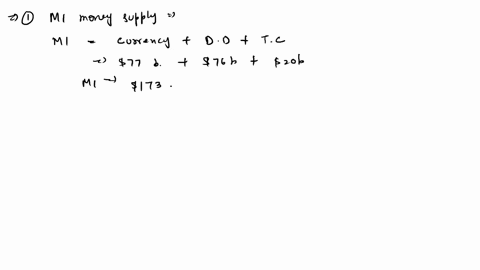 ⇒ ① M1 money supply ⇒
M1 = Currency + D.D + T.C
→ $77 b. + $76b + $20b
M1 → $173.